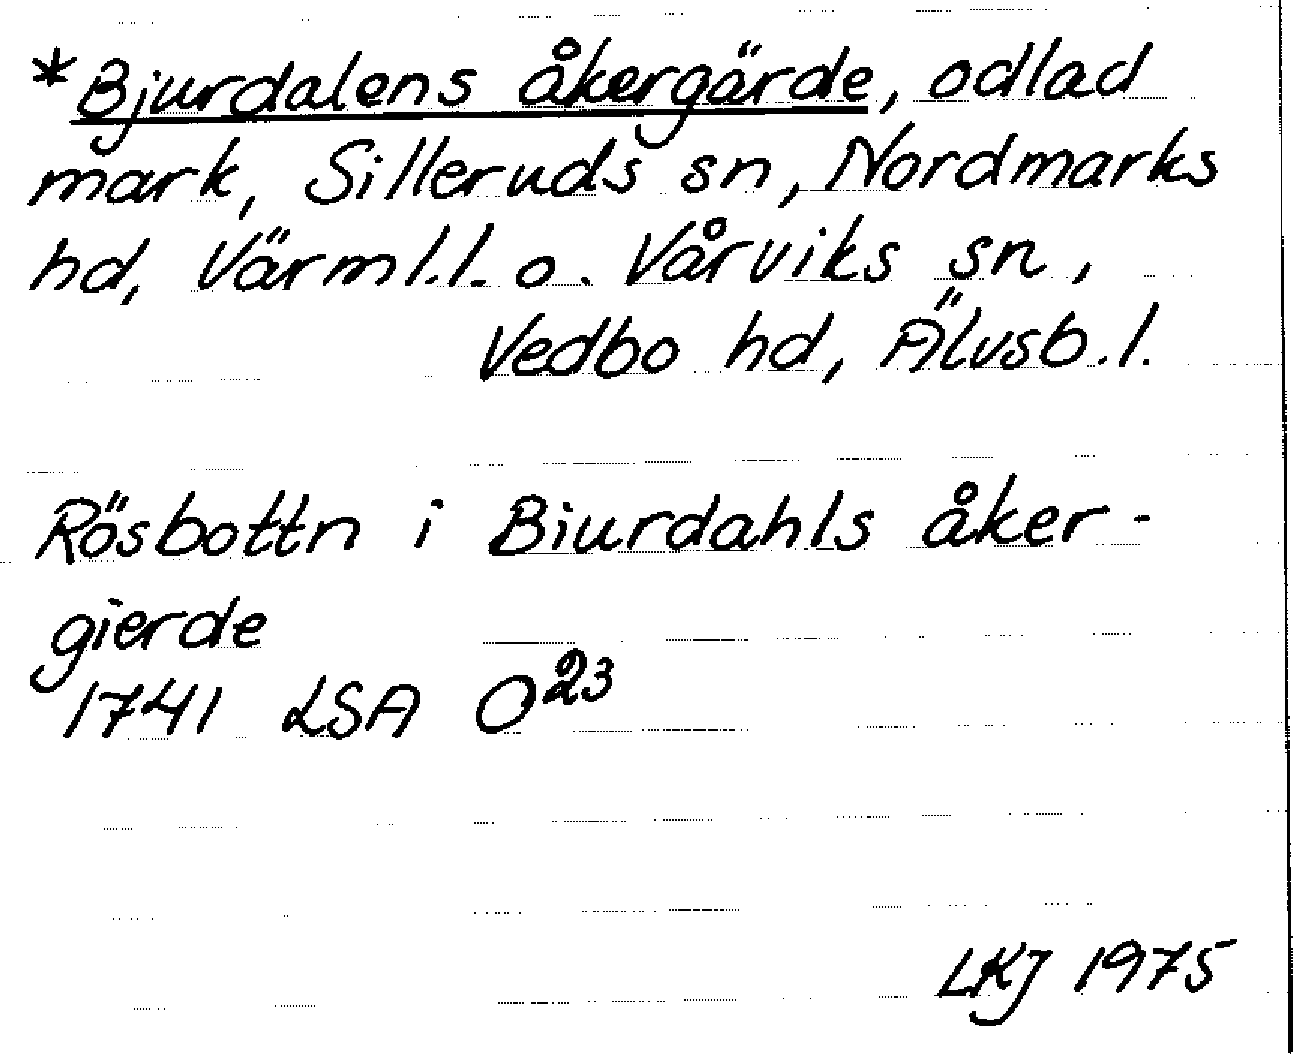 *Bjurdalens åkergärde, odlad
mark, Silleruds sn, Nordmarks
hd, Värml.l. o. Vårviks sn,
Vedbo hd, Älvsb.l.
Rösbottn i Biurdahls åker-
gierde
1741 LSA O23
LKJ 1975